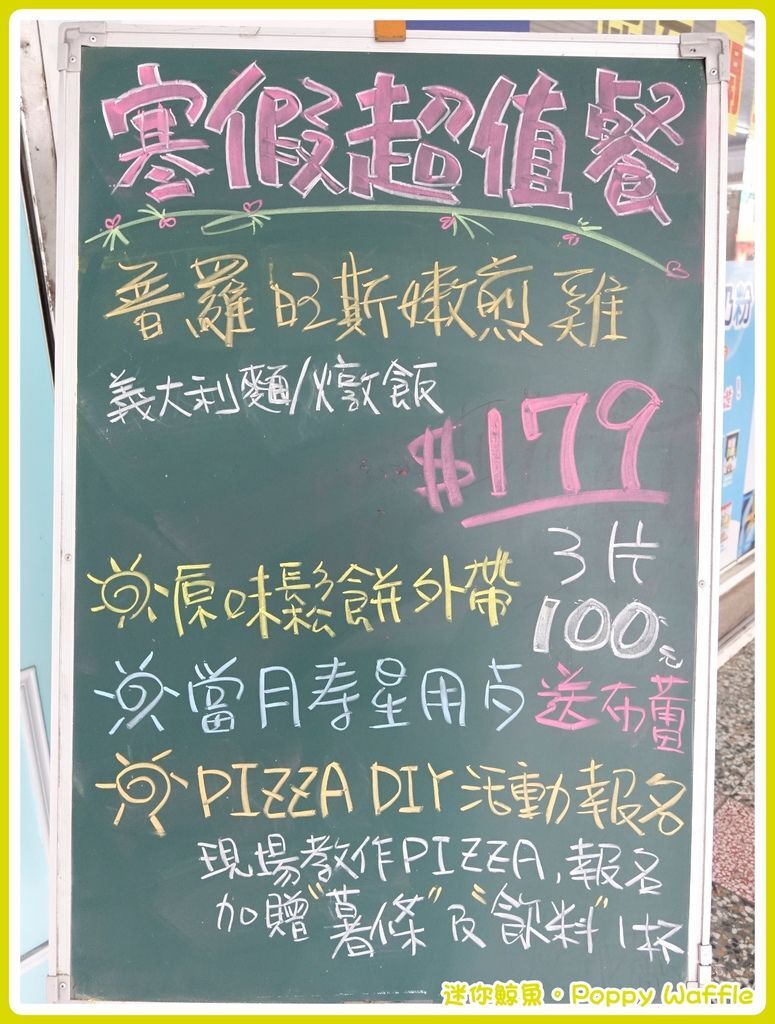 寒假超值餐
普羅旺斯嫩煎雞
義大利麵/燉飯
$179
原味鬆餅外帶 3片
100元
當月壽星用卡送布蕾
PIZZA DIY 活動報名
現場教作PIZZA,報名
加贈"薯條"及"飲料"1杯
迷你鯨魚。Poppy Waffle